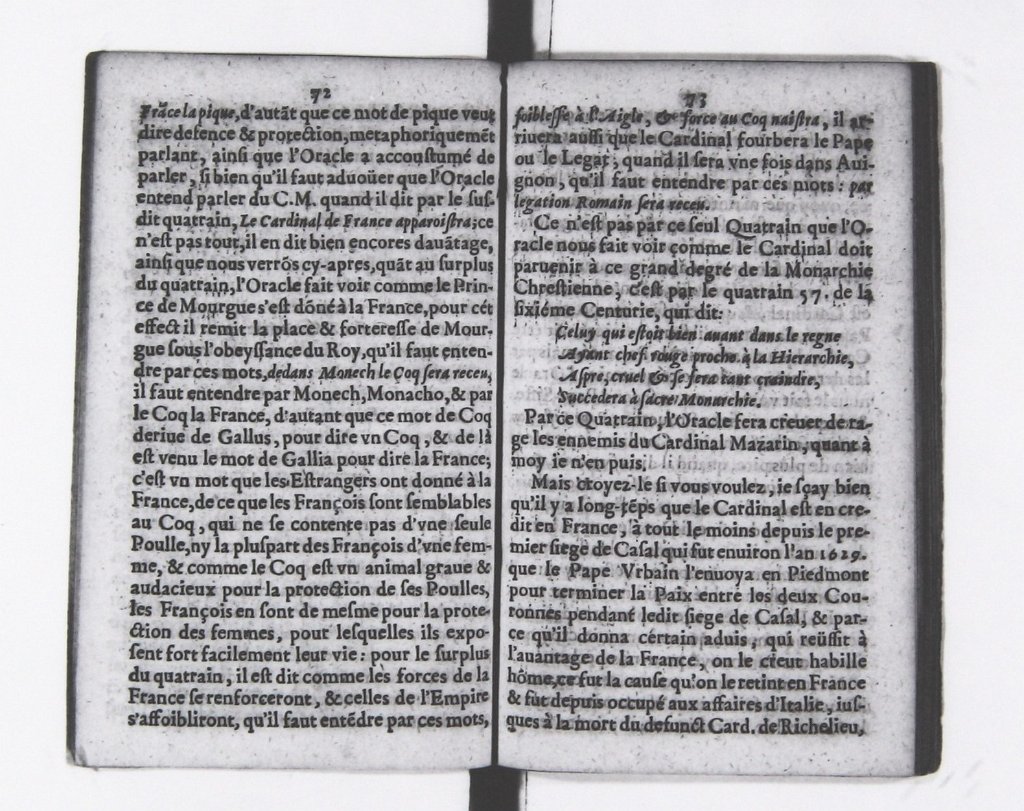 72
Frãce la pique, d'autãt que ce mot de pique veut
dire defence & protection, metaphoriquemẽt
parlant, ainsi que l'Oracle a accoustumé de
parler, si bien qu'il faut aduoüer que l'Oracle
entend parler du C.M. quand il dit par le sus-
dit quatrain, Le Cardinal de France apparoistra; ce
n'est pas tout, il en dit bien encores dauãtage,
ainsi que nous verrõs cy-apres, quãt au surplus
du quatrain, l'Oracle fait voir comme le Prin-
ce de Mourgue s'est dõné à la France, pour cét
effect il remit la place & forteresse de Mour-
gue sous l'obeyssance du Roy, qu'il faut enten-
dre par ces mots, dedans Monech le Coq sera receu,
il faut entendre par Monech, Monacho, & par
le Coq la France, d'autant que ce mot de Coq
deriue de Gallus, pour dire vn Coq, & de là
est venu le mot de Gallia pour dire la France;
c'est vn mot que les Estrangers ont donné à la
France, de ce que les François sont semblables
au Coq, qui ne se contente pas d'vne seule
Poulle, ny la pluspart des François d'vne fem-
me, & comme le Coq est vn animal graue &
audacieux pour la protection de ses Poulles,
les François en sont de mesme pour la prote-
ction des femmes, pour lesquelles ils expo-
sent fort facilement leur vie: pour le surplus
du quatrain, il est dit comme les forces de la
France se renforceront, & celles de l'Empire
s'affoibliront, qu'il faut entẽdre par ces mots,
73
foiblesse à l'Aigle, & force au Coq naistra, il ar-
riuera aussi que le Cardinal fourbera le Pape
ou le Legat, quand il sera vne fois dans Aui-
gnon, qu'il faut entendre par ces mots: par
legation Romain sera receu.
Ce n'est pas par ce seul Quatrain que l'O-
racle nous fait voir comme le Cardinal doit
paruenir à ce grand degré de la Monarchie
Chrestienne, c'est par le quatrain 57. de la
sixiéme Centurie, qui dit:
Celuy qui estoit bien auant dans le regne
Ayant chef rouge proche à la Hierarchie,
Aspre, cruel & se fera tant craindre,
Succedera à sacre Monarchie.
Par ce Quatrain, l'Oracle fera creuer de ra-
ge les ennemis du Cardinal Mazarin, quant à
moy ie n'en puis.
Mais croyez-le si vous voulez, ie sçay bien
qu'il y a long-tẽps que le Cardinal est en cre-
dit en France, à tout le moins depuis le pre-
mier siege de Casal qui fut enuiron l'an 1629.
que le Pape Vrbain l'enuoya en Piedmont
pour terminer la Paix entre les deux Cou-
ronnes pendant ledit siege de Casal, & par-
ce qu'il donna certain aduis, qui reüssit à
l'auantage de la France, on le creut habille
hõme, ce fut la cause qu'on le retint en France
& fut depuis occupé aux affaires d'Italie, ius-
ques à la mort du defunct Card. de Richelieu,